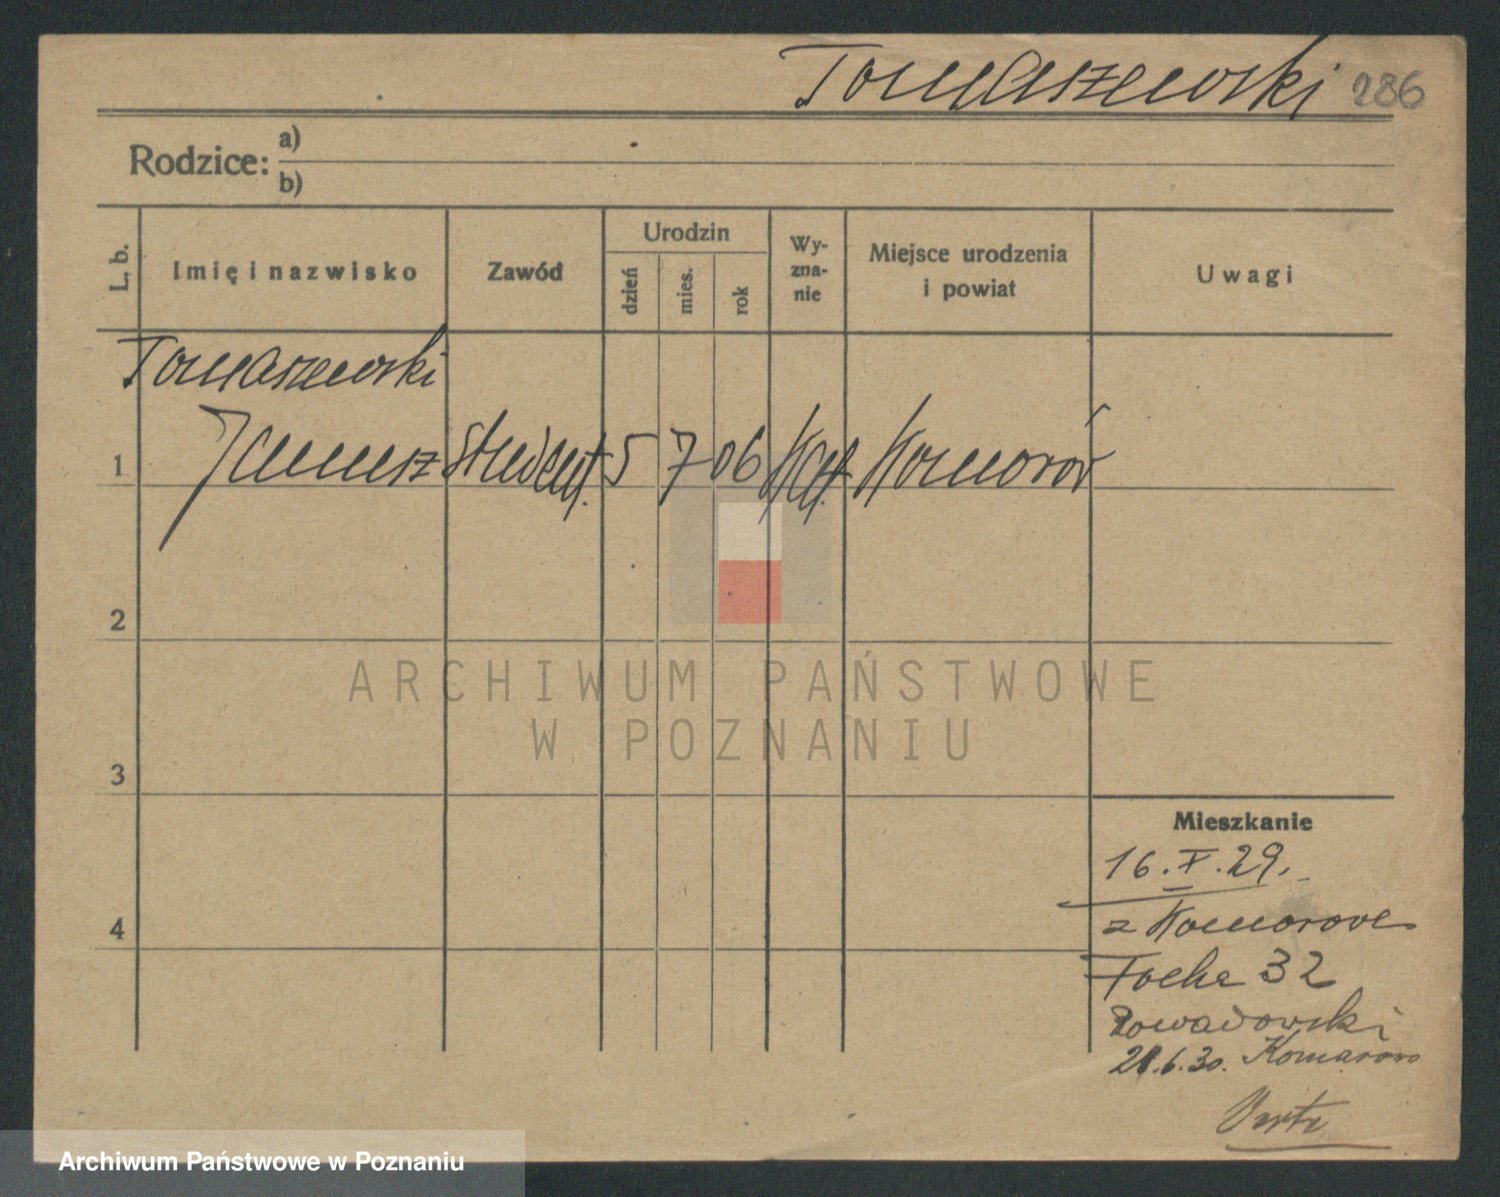 Tomaszewski 286
Rodzice: a)
b)
L. b. Imię i nazwisko Zawód Urodzin dzień mies. rok Wyzna-nie Miejsce urodzenia i powiat Uwagi
Tomaszewski
1 Janusz student. 5 7 06 kat. Komorów
2
ARCHIWUM PAŃSTWOWE
W POZNANIU
3
Mieszkanie
16.X.29.
4
z Komorowa
Focha 32
21.6.30. Komorowo
Verte
Archiwum Państwowe w Poznaniu